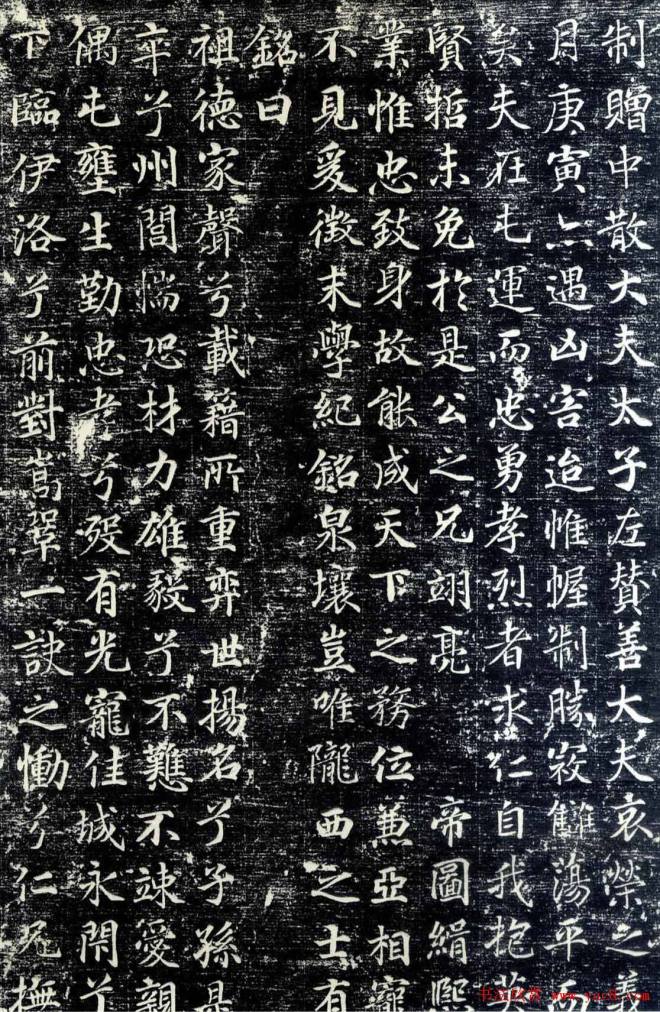 制贈中散大夫太子左贊善大夫哀榮之義
月庚寅亦遇凶害迨惟幄制勝寇讎蕩平而
矣夫在屯運而忠勇孝烈者求仁自我抱
賢哲未免於是公之兄翊亮 帝圖緝熙
業惟忠致身故能成天下之務位兼亞相寵
不見爰徵末學紀銘泉壤豈唯隴西之士有
銘曰
祖德家聲兮載籍所重弈世揚名兮子孫是
卒兮州閭惴恐材力雄毅兮不難不竦愛親
偶屯壅生勤忠孝兮歿有光寵佳城永閇兮
下臨伊洛兮前對嵩鞏一訣之慟兮仁兄撫